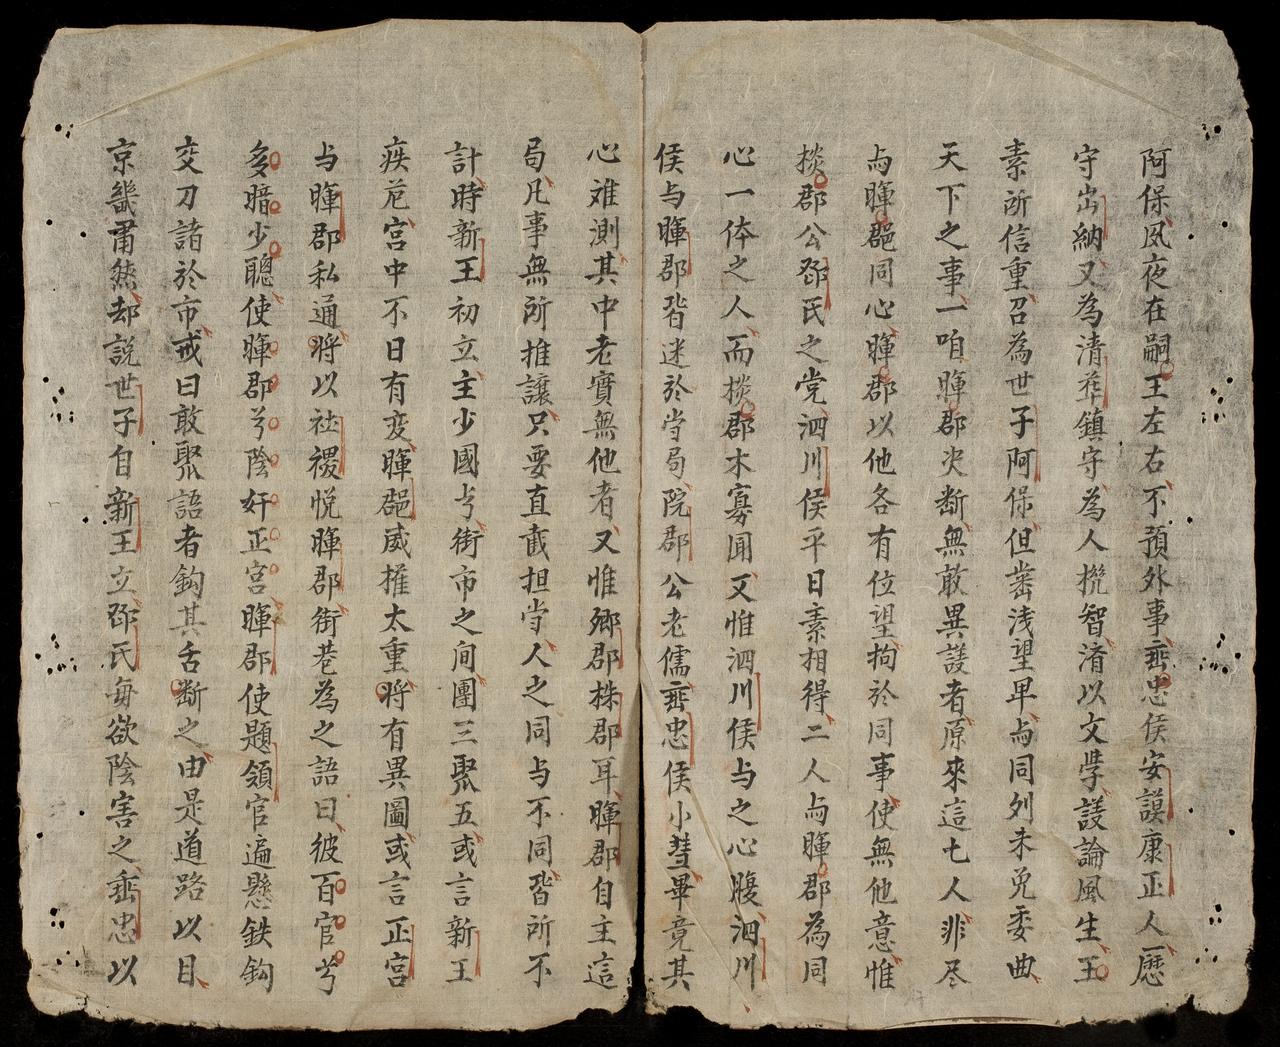 阿保夙夜在嗣王左右不預外事埀忠侯安謨康正人歷
守出納又為清華鎮守為人挩智渚以文學議論風生王
素所信重召為世子阿保但蓄浅望早与同列未免委曲
天下之事一咱暉郡决断無敢異議者原來這七人非尽
与暉郡同心暉郡以他各有位望拘於同事使無他意惟
掞郡公鄧氏之党泗川侯平日素相得二人与暉郡為同
心一体之人而掞郡木寡聞又惟泗川侯与之心腹泗川
侯与暉郡皆迷於当局院郡公老儒埀忠侯小彗畢竟其
心难測其中老實無他者又惟鄉郡株郡耳暉郡自主這
局凡事無所推讓只要直截担当人之同与不同皆所不
計時新王初立主少國𠮩街市之间團三聚五或言新王
疾危宮中不日有变暉郡威摧太重將有異圖或言正宮
与暉郡私通將以社禝悦暉郡街巷為之語曰彼百官兮
多暗少聰使暉郡兮陰奸正宮暉郡使題領官遍懸鉄鈎
交刀諸於市戒曰敢聚語者鈎其舌断之由是道路以目
京畿肅然却説世子自新王立鄧氏每欲陰害之埀忠以